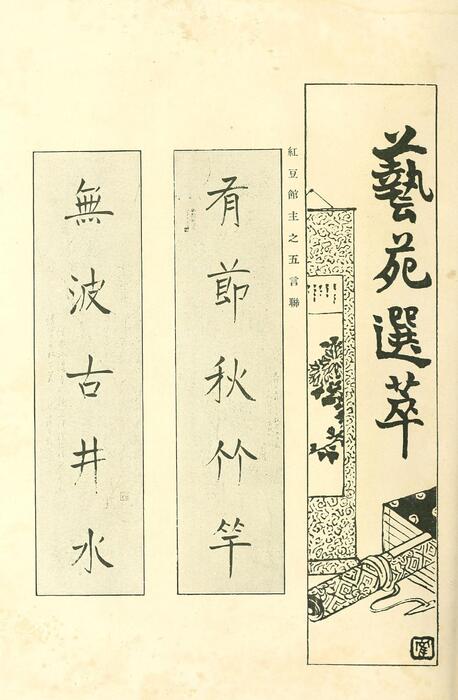 藝苑選萃
紅豆館主之五言聯
有節秋竹竿
無波古井水